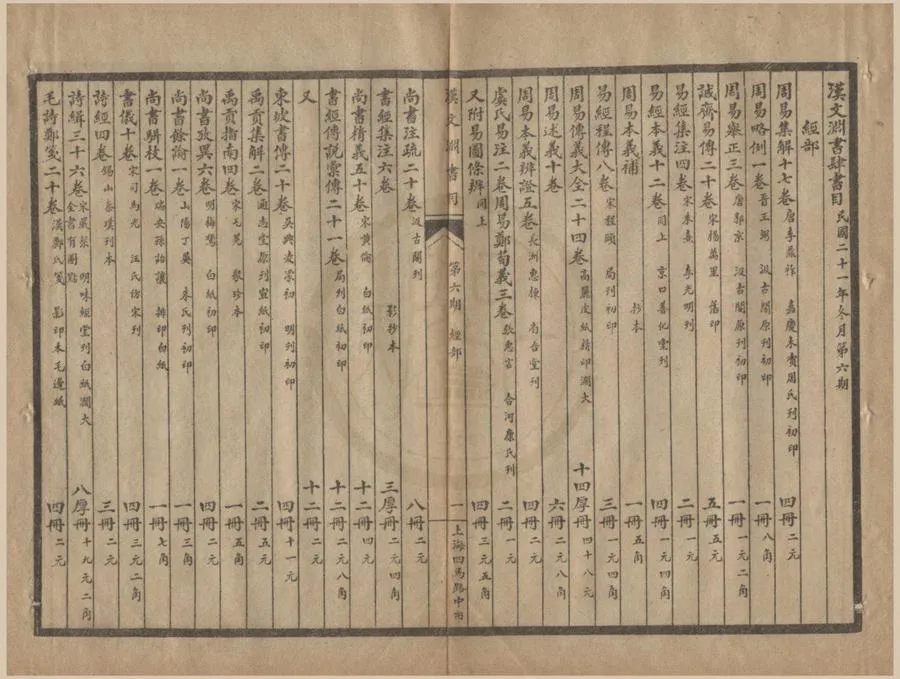 漢文淵書肆書目 民國二十一年冬月第六期
經部
周易集解十七卷 唐李鼎祚 嘉慶木瀆周氏刊初印 四冊 二元
周易略例一卷 晉王弼 汲古閣原刊初印 一冊 八角
周易舉正三卷 唐郭京 汲古閣原刊初印 一冊 一元二角
誠齋易傳二十卷 宋楊萬里 舊印 五冊 二元
易經集注四卷 宋朱熹 李光明刊 二冊 一元
易經本義十二卷 同上 京口善化堂刊 四冊 一元
周易本義補 抄本 一冊 五角
易經程傳八卷 宋程頤 局刊初印 三冊 一元四角
周易傳義大全二十四卷 高麗皮紙精印濶大 十四厚冊 四十八元
周易述義十卷 六冊 二元八角
周易本義辨證五卷 長洲惠棟 省吾堂刊 四冊 二元
虞氏易注二卷周易鄭荀義三卷 張惠言 合河康氏刊 二冊 一元
又附易圖條辨 同上 四冊 三元五角
漢文淵書目 第六期 經部 一 上海四馬路中市
尚書注疏二十卷 汲古閣刊 八冊 二元
書經集注六卷 影抄本 三厚冊 二元四角
尚書精義五十卷 宋黄倫 白紙初印 十二冊 四元
書經傳說彙傳二十一卷 局刊白紙初印 十二冊 二元八角
又 十二冊 二元
東坡書傳二十卷 吳興凌濛初 明刊初印 四冊 十一元
禹貢集解二卷 通志堂原刊宣紙初印 二冊 五元
禹貢指南四卷 宋毛晃 聚珍本 一冊 五角
尚書攷異六卷 明梅鷟 白紙初印 四冊 二元
尚書餘論一卷 山陽丁晏 朱氏刊初印 一冊 三角
尚書駢枝一卷 瑞安孫詒讓 排印白紙 一冊 七角
書儀十卷 宋司馬光 汪氏仿宋刊 四冊 三元二角
詩經四卷 錫山秦璞刊本 三冊 二元
詩緝三十六卷 宋嚴粲 明味經堂刊白紙濶大 全書有圈點 八厚冊 十九元二角
毛詩鄭箋二十卷 漢鄭氏箋 影印本毛邊紙 四冊 二元